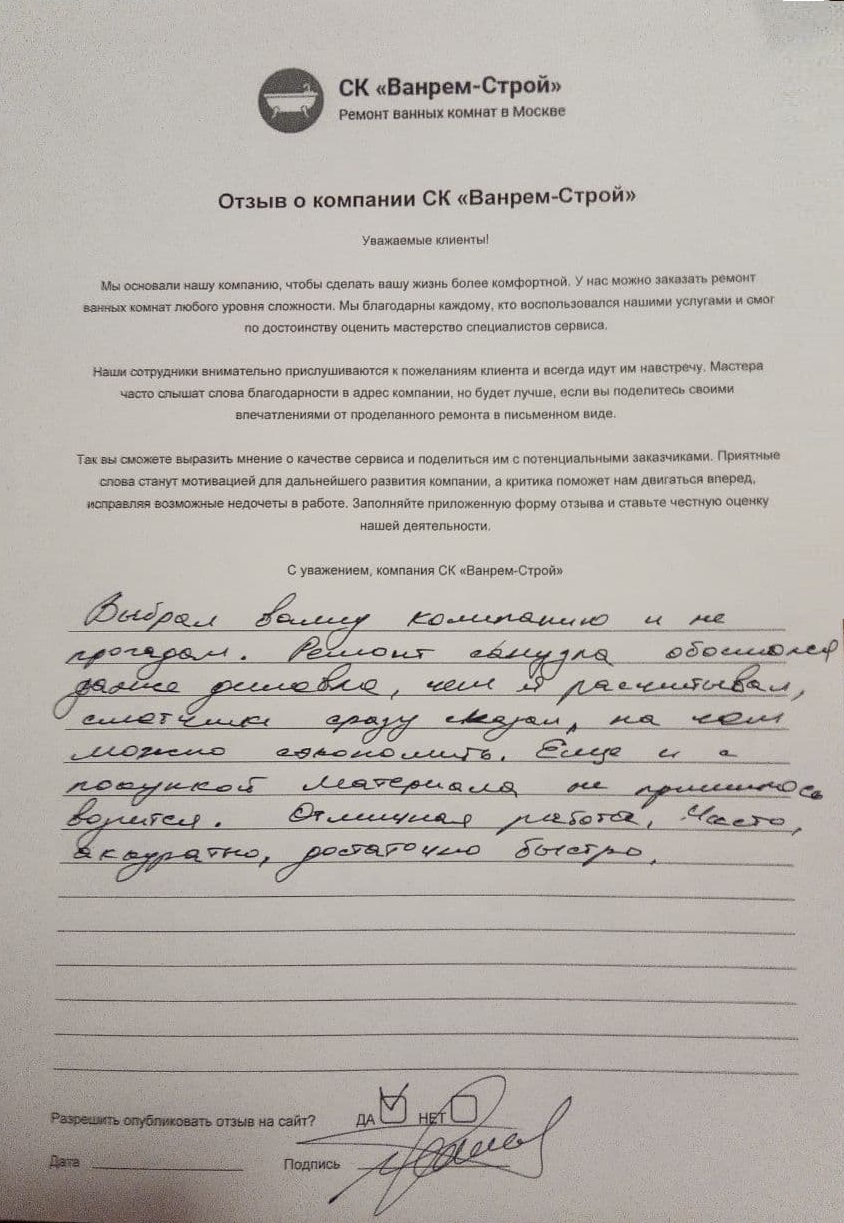 СК «Ванрем-Строй»
Ремонт ванных комнат в Москве
Отзыв о компании СК «Ванрем-Строй»
Уважаемые клиенты!
Мы основали нашу компанию, чтобы сделать вашу жизнь более комфортной. У нас можно заказать ремонт
ванных комнат любого уровня сложности. Мы благодарны каждому, кто воспользовался нашими услугами и смог
по достоинству оценить мастерство специалистов сервиса.
Наши сотрудники внимательно прислушиваются к пожеланиям клиента и всегда идут им навстречу. Мастера
часто слышат слова благодарности в адрес компании, но будет лучше, если вы поделитесь своими
впечатлениями от проделанного ремонта в письменном виде.
Так вы сможете выразить мнение о качестве сервиса и поделиться им с потенциальными заказчиками. Приятные
слова станут мотивацией для дальнейшего развития компании, а критика поможет нам двигаться вперед,
исправляя возможные недочеты в работе. Заполняйте приложенную форму отзыва и ставьте честную оценку
нашей деятельности.
С уважением, компания СК «Ванрем-Строй»
Выбрал вашу компанию и не
прогадал. Ремонт санузла обошолся
даже дешевле, чем я рассчитывал,
сметчики сразу сказал, на чем
можно сэкономить. Еще и с
покупкой материала не пришлось
возится. Отличная работа, Чисто,
аккуратно, достаточно быстро.
Разрешить опубликовать отзыв на сайт? ДА НЕТ
Дата Подпись